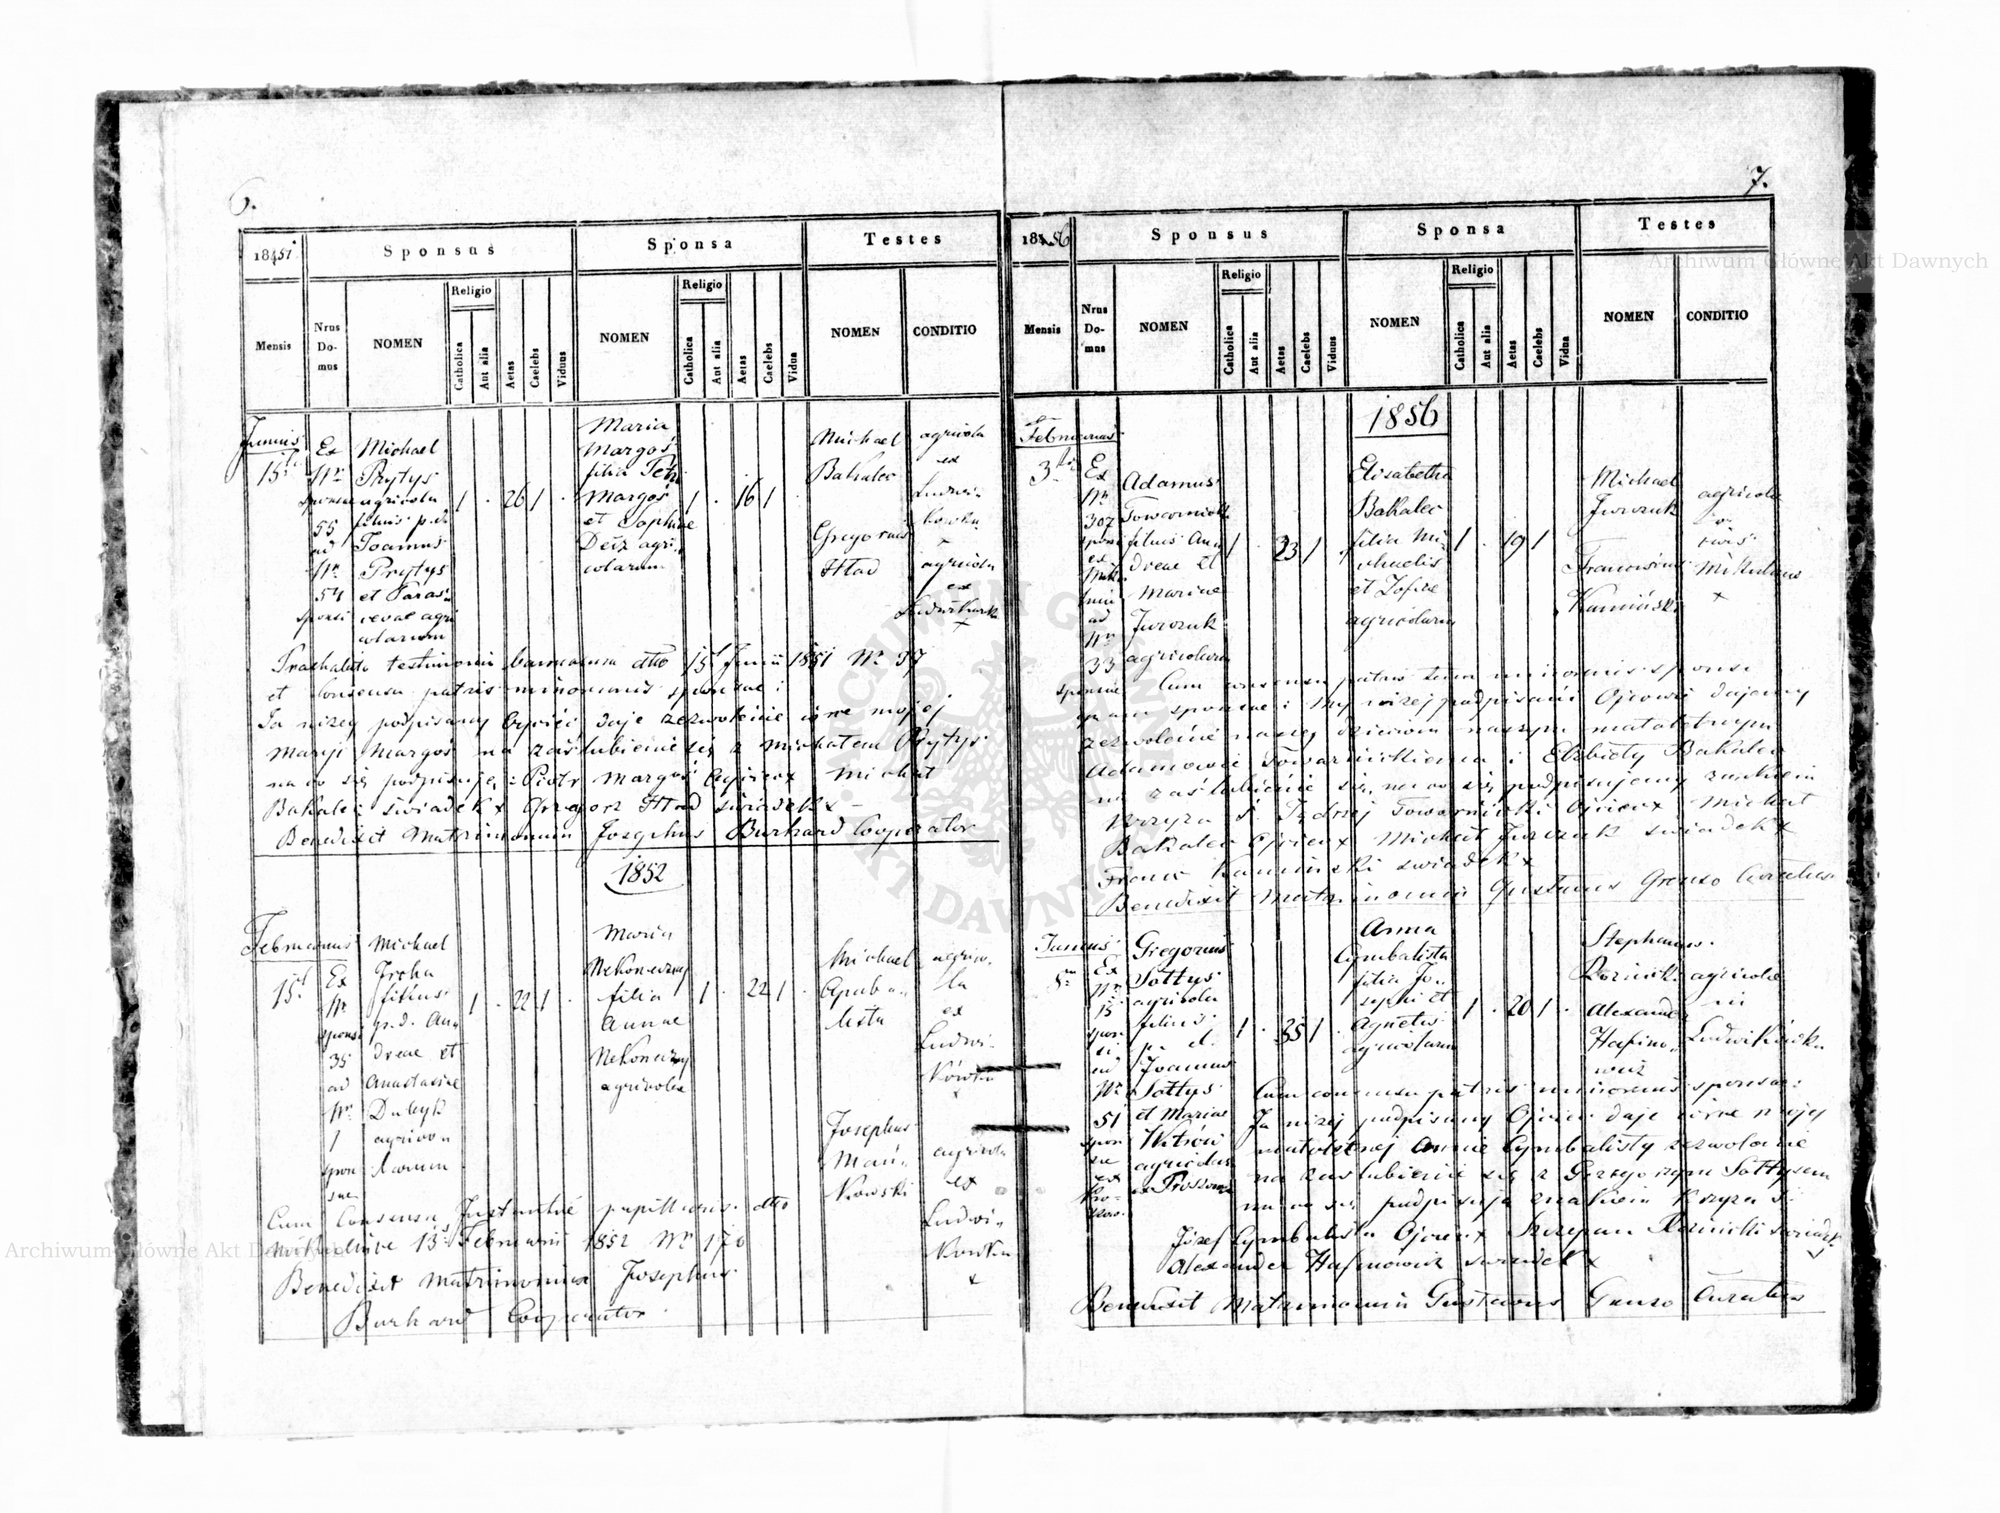 6.
1851
Sponsus
Sponsa
Testes
Mensis
Nrus Do- mus
NOMEN
Religio
Catholica
Aut alia
Aetas
Caelebs
Viduus
NOMEN
Religio
Catholica
Aut alia
Aetas
Caelebs
Vidua
NOMEN
CONDITIO
Junius
15
Ex
Nr
sponsae
55
ad
Nr
54
sponsi
Michael
Prytys
agricola
filius p.d.
Joannis
Prytys
et Paras-
cevae agri
colarum
1 . 26 1 .
Maria
Margoś
filia Petri
Margoś
et Sophiae
Deiz agri-
colarum
1 . 16 1
Michael
Bakalec
Gregorius
Hład
agricola
ex
Ludwi-
kowka
+
agricola
ex
Ludwikowka
+
testimonii bannorum dtto 15 Junii 1851 Nr 37
et consensu patris minorennis sponsae:
Ja niżej podpisany Ojciec daje zezwolenie córce mojej
Maryi Margoś na zaślubienie się z Michałem Prytys
na co się podpisuje = Piotr Margoś Ojciec x Michał
Bakalec świadek x Grzegorz Hład świadek x –
Benedixit Matrimonium Josephus Burhard Cooperator
1852
Februarius
15
Ex
Nr
sponsi
35
ad
Nr
1
spon
sae
Michael
filius
p.d. An-
dreae et
Anastasiae
agrico-
larum
1 . 22 1 .
Maria
Nekoneczny
filia
Annae
Nekoneczny
agricolae
1 . 22 1 .
Michael
lista
agrico-
la
ex
Ludwi-
kówka
+
Josephus
Mań-
kowski
agricola
ex
Ludwi-
kowka
+
Cum Consensu pupillaris dtto
13 Februarii 1852 Nr 170
Benedixit Matrimonium Josephus
Burhard Cooperator
7.
1856
Sponsus
Sponsa
Testes
Mensis
Nrus Do- mus
NOMEN
Religio
Catholica
Aut alia
Aetas
Caelebs
Viduus
NOMEN
Religio
Catholica
Aut alia
Aetas
Caelebs
Vidua
NOMEN
CONDITIO
1856
Februarius
3
Ex
Nr
307
sponsi
ex
ad
Nr
33
sponsae
Adamus
Towarnicki
filius An-
dreae et
Mariae
Jurczuk
agricolarum
1 . 23 1
Elisabetha
Bakalec
filia Mi-
chaelis
et Zofiae
agricolarum
1 . 19 1
Michael
Jurczuk
Franciscus
Kamiński
agricola
+
Cum consensu patris tum minorennis sponsi
quam sponsae: My niżej podpisani Ojcowie dajemy
zezwolenie naszej dzieciom naszym małoletnym
Adamowi Towarnickiemu i Elżbiety Bakalec
na zaślubienie się, na co się podpisujemy znakiem
krzyża S. Jędrzej Towarnicki Ojciec x Michał
Bakalec Ojciec x Michał Jurczuk świadek x
Franc Kamiński świadek x
Benedixit Matrimonium Gustavus Curatus
Junius
5
Ex
Nr
15
spon
si
ad
Nr
51
spon
sae
ex
Gregorius
Sołtys
agricola
filius
p. d.
Joannis
Sołtys
et Mariae
agricolar.
1 . 35 1 .
Anna
Cymbalista
filia Jo-
sephi et
Agnetis
agricolarum
1 . 20 1 .
Stephanus
Roznicki
Alexander
Hafino-
wicz
agricolae
in
Ludwikówka
Cum consensu patris minorennis sponsae:
Ja niżej podpisany Ojciec daje córce mojej
małoletnej Annie Cymbalisty zezwolenie
na zaślubienie się z Grzegorzem Sołtysem
na co się podpisuje znakiem krzyża S.
Józef Cymbalista Ojciec x Szczepan Roznicki świadek x
Alexander Hafinowicz świadek x
Benedixit Matrimonium Gustavus Curatus
Archiwum Główne Akt Dawnych
Archiwum Główne Akt Dawnych
ARCHIWUM GŁÓWNE AKT DAWNYCH